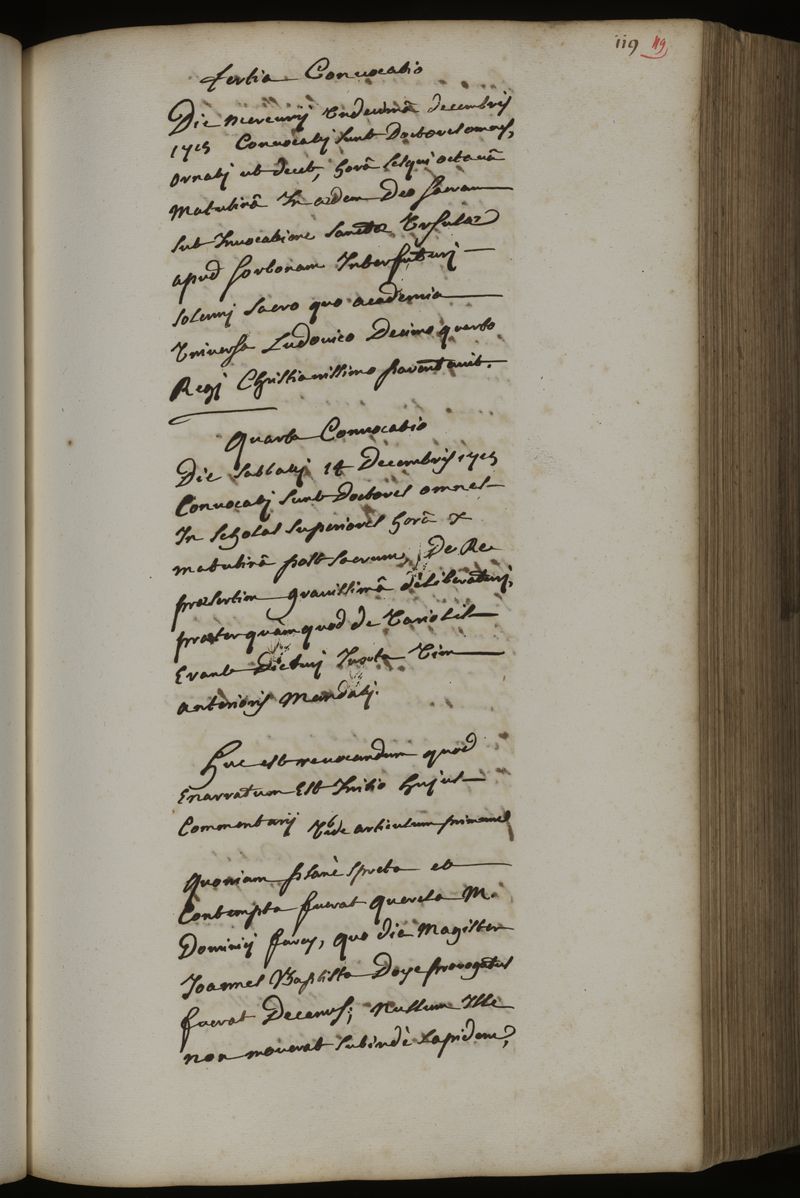 119 119
tertia Convocatio
Die mercurij Undecimâ decembris
1715 Convocatj sunt Doctores omnes,
ornatj ut decet, horâ sesqui octavâ
matutinâ In aedem Deo sacram
sub Invocatione sanctae Ursulae
apud sorbonam Interfuturj
solemnj sacro quo academia
Universa Ludovico Decimo quarto
Regj Christianissimo parentavit.
Quarta Convocatio
Die sabbatj 14 Decembris 1715
Convocatj sunt Doctores omnes
In scholas superiores horâ X
matutinâ post sacrum, De Re
praesertim gravissimâ deliberaturj,
praeterquam quod de Variolis
Erant Dicturj Juxta Vim
anterioris Mandatj.
Huc est revocandum quod
Enarratum Est Initio hujus
Commentarij Vide articulum primum
Quoniam planè spreta et
Contempta fuerat querela M.
Dominicj farcy, quo die Magister
Joannes Baptista Doye prorogatus
fuerat Decanus; Nullum Ille
non moverat subindè Lapidem,